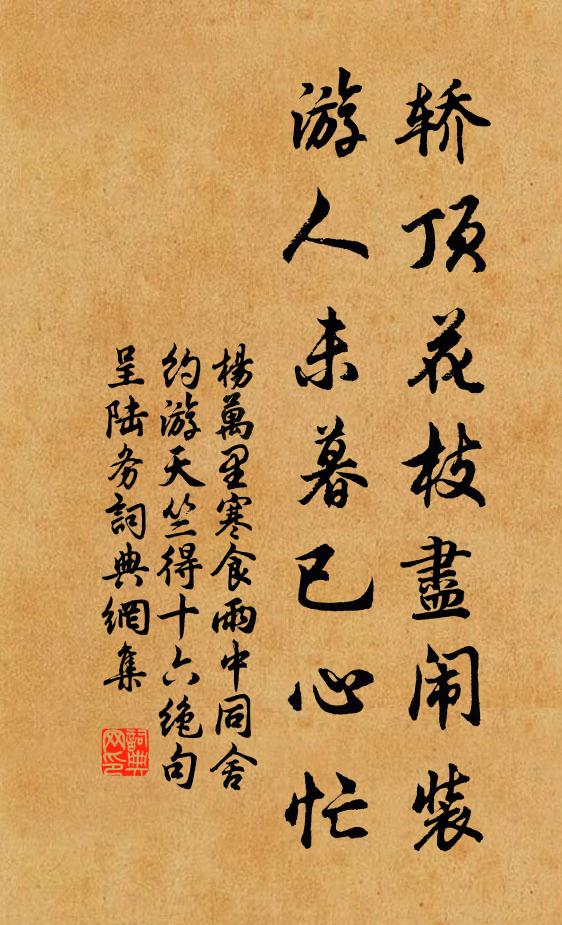 轿顶花枝盡闹装
游人未暮已心忙
楊萬里寒食雨中同舍
约游天竺得十六绝句
呈陆务詞典網集
詞典
网印